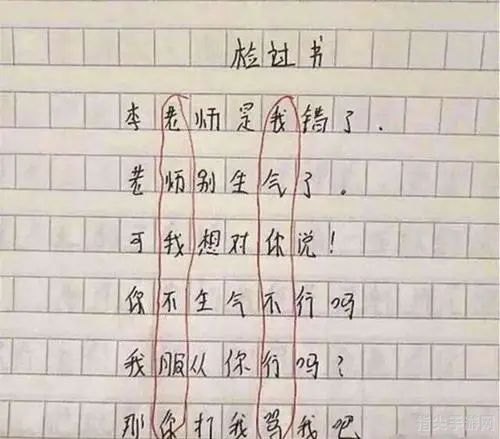 检过书
李老师是我错了.
老师别生气了.
可我想对你说!
你不生气不行吗
我服从你行吗?
那你打我骂我吧
指尖手游网